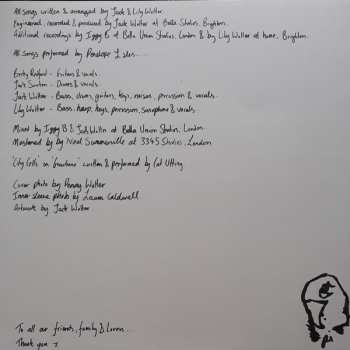 All songs written & arranged by Jack & Lily Wolter.
Engineered, recorded & produced by Jack Wolter at Bella Studios, Brighton.
Additional recordings by Iggy B at Bella Union Studios, London & by Lily Wolter at home, Brighton.
All songs performed by Penelope Isles...
Becky Redford - Guitars & vocals.
Jack Sowton - Drums & vocals.
Jack Wolter - Bass, drums, guitars, keys, noises, percussion & vocals.
Lily Wolter - Bass, keys, percussion, & vocals.
Mixed by Iggy B & Jack Wolter at Bella Union Studios, London.
Mastered by by Noel Summerville at 3345 Studios, London.
written & performed by Cal Utting.
Cover photo by Penny Wolter
Inner sleeve photos by Lauren Caldwell
Artwork by Jack Wolter.
To all our friends, family & lovers...
Thank you